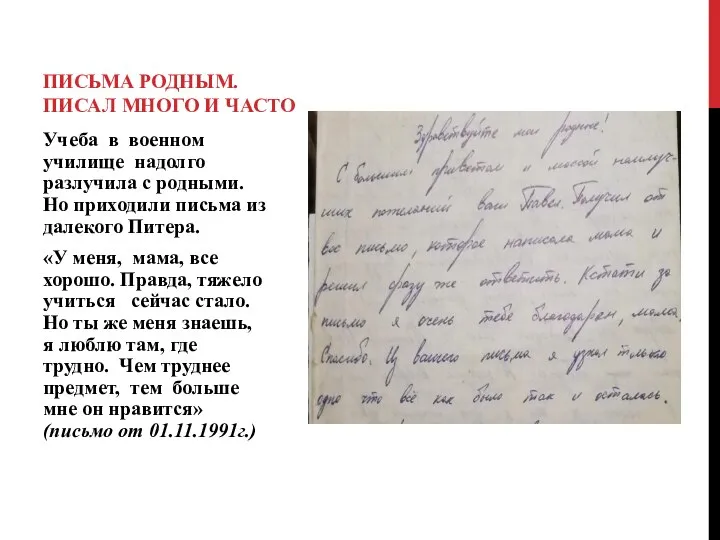 ПИСЬМА РОДНЫМ.
ПИСАЛ МНОГО И ЧАСТО
Учеба в военном
училище надолго
разлучила с родными.
Но приходили письма из
далекого Питера.
«У меня, мама, все
хорошо. Правда, тяжело
учиться сейчас стало.
Но ты же меня знаешь,
я люблю там, где
трудно. Чем труднее
предмет, тем больше
мне он нравится»
(письмо от 01.11.1991г.)
Здравствуйте мои родные!
С большим приветом и массой наилуч-
ших пожеланий ваш Павел. Получил от
вас письмо, которое написала мама и
решил сразу же ответить. Кстати за
письмо я очень тебе благодарен, мама.
Спасибо. Из вашего письма я узнал только
одно что всё как было так и осталось.